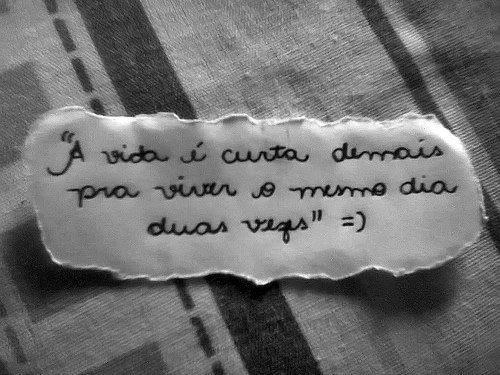 "A vida é curta demais
pra viver o mesmo dia
duas vezes" =)